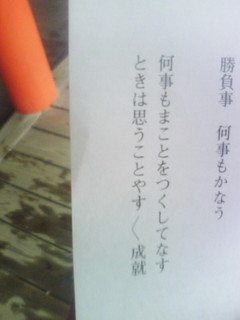 勝負事　何事もかなう
何事もまことをつくしてなす
ときは思うことやす〱成就